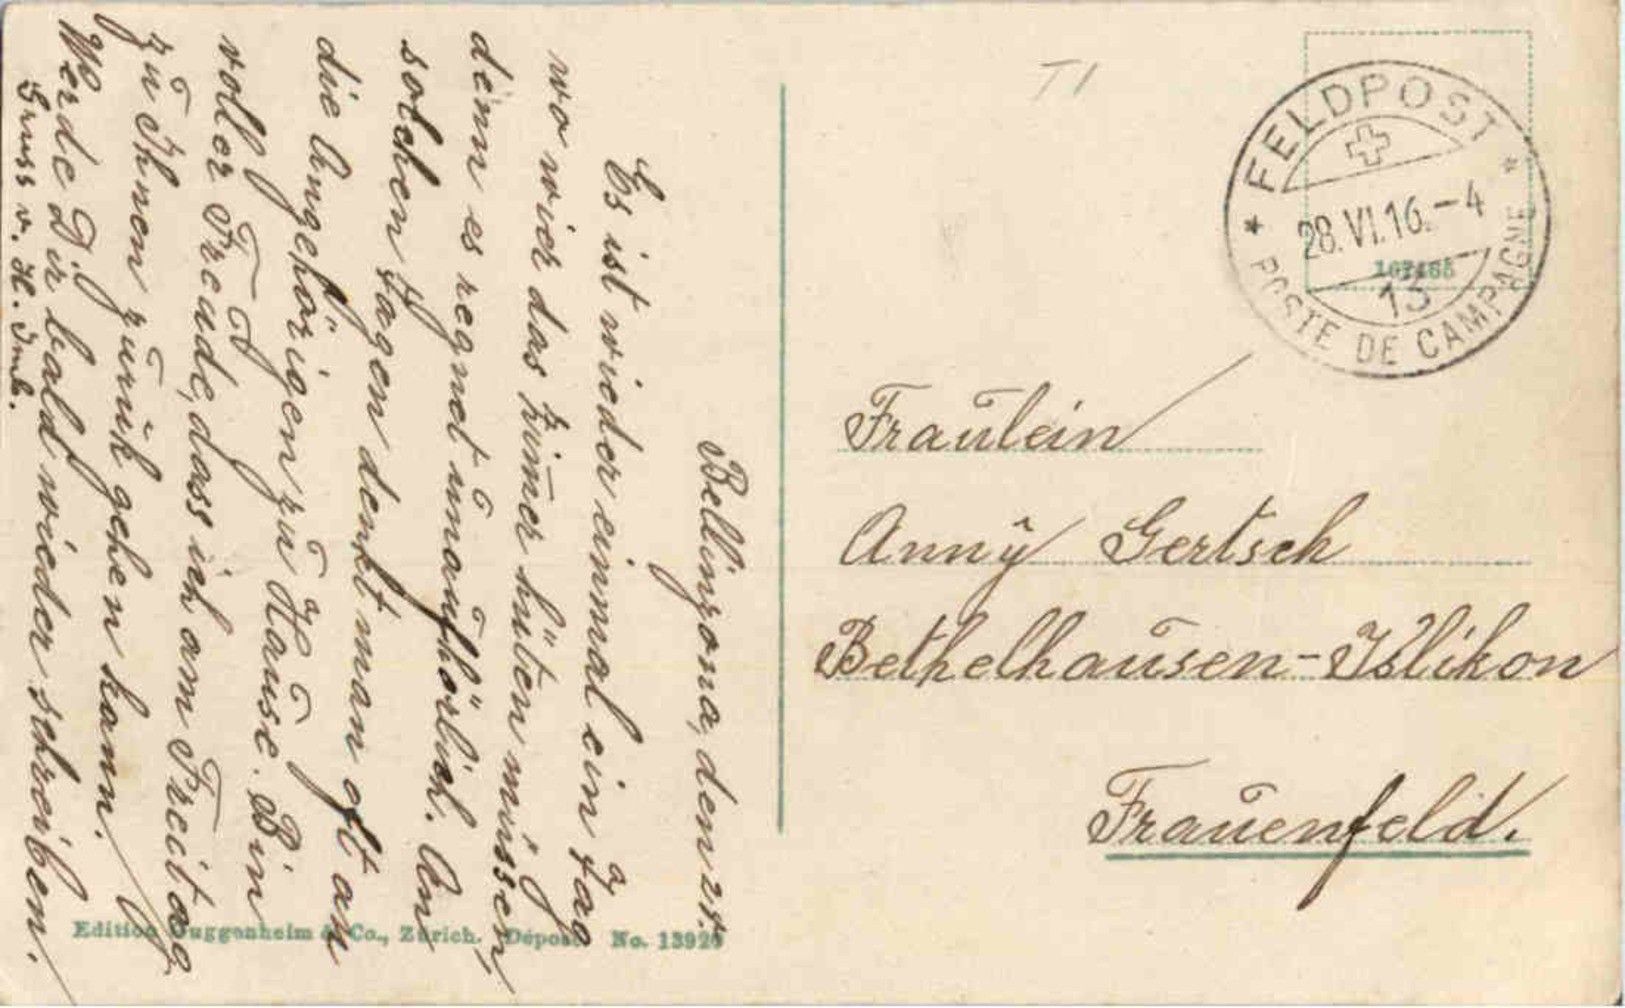 Bellinzona, den 28.
Es ist wieder einmal ein Tag
wo wier das Zim̄er hüten müssen,
denn es regnet ūnaūfhörlich. An
solchen Tagen denkt man oft an
die Angehörigen zū Haūse. Bin
voller Freude, dass ich am Freitag
zū Ihnen zūrük gehen kann.
Werde Dir bald wieder schreiben.
Gruss v. H.
T1
* FELDPOST *
28.VI.16.-4
13
POSTE DE CAMPAGNE
Fraūlein
Anny Gertsch
Bethelhaūsen-Islikon
Fraūenfeld.
Edition Guggenheim & Co., Zürich. Déposé No. 13926